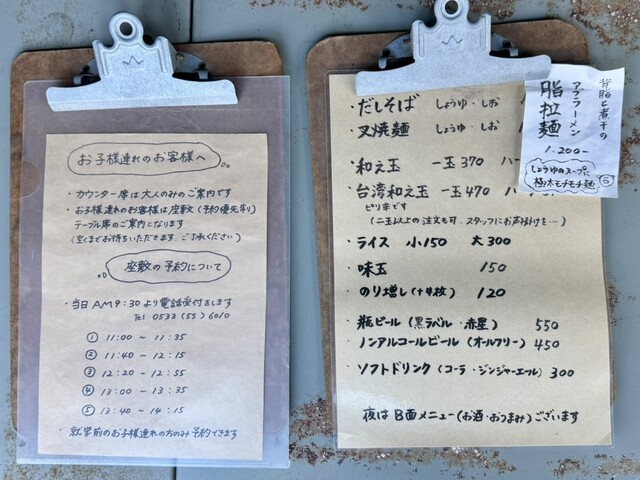 お子様連れのお客様へ
・カウンター席は大人のみのご案内です
・お子様連れのお客様は座敷(予約優先制)
テーブル席のご案内となります
(空くまでお待ちいただきます、ご了承ください)
座敷の予約について
・当日AM9:30より電話受付をします
Tel 0533(55)6010
① 11:00 ~ 11:35
② 11:40 ~ 12:15
③ 12:20 ~ 12:55
④ 13:00 ~ 13:35
⑤ 13:40 ~ 14:15
・就学前のお子様連れの方のみ予約できます
・だしそば しょうゆ・しお
・叉焼麺 しょうゆ・しお
・和え玉 一玉370 ハ
・台湾和え玉 一玉470 ハ
ピリ辛です
(二玉以上の注文も可、スタッフにお声掛けを…)
・ライス 小150 大300
・味玉 150
・のり増し(+4枚) 120
・瓶ビール(黒ラベル・赤星) 550
・ノンアルコールビール(オールフリー) 450
・ソフトドリンク(コーラ・ジンジャーエール) 300
夜はB面メニュー(お酒・おつまみ)ございます
背脂と煮干の
アブラーメン
脂拉麺
1.200-
しょうゆのスープに
極太モチモチ麺